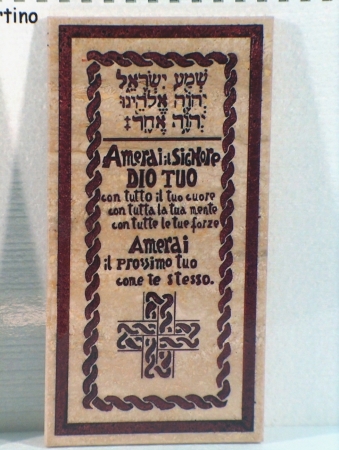 rtino
שְׁמַע יִשְׂרָאֵל
יְהוָה אֱלֹהֵינוּ
יְהוָה אֶחָד׃
Amerai il SIGNore
DIO TUO
con tutto il tuo cuore
con tutta la tua mente
con tutte le tue forze
Amerai
il prossimo tuo
come te stesso.